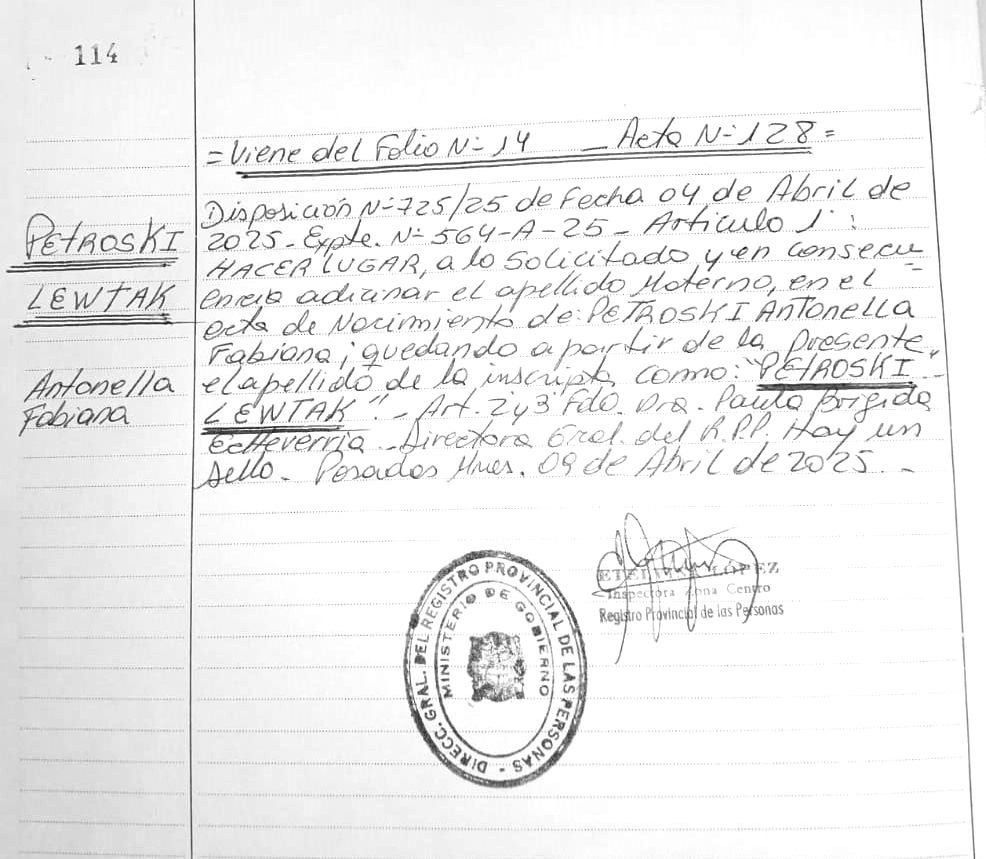 114
= Viene del Folio Nº 14 — Acta Nº 128 =
PETROSKI
LEWTAK
Antonella
Fabiana
Disposición Nº 725/25 de Fecha 04 de Abril de
2025. Expte. Nº 564-A-25 - Artículo 1º:
HACER LUGAR, a lo solicitado y en consecu
encia adicinar el apellido Materno, en el
acta de Nacimiento de: PETROSKI ANTONELLA
Fabiana; quedando a partir de la presente,
el apellido de la inscripta como: "PETROSKI
LEWTAK". Art. 2 y 3 Fdo. Dra. Paula Brigida
Echeverria - Directora Gral. del R.P.P. Hay un
Sello. Posadas Mnes. 09 de Abril de 2025.-
LÓPEZ
Inspectora Zona Centro
Registro Provincial de las Personas
DIRECC. GRAL. DEL REGISTRO PROVINCIAL DE LAS PERSONAS -
MINISTERIO DE GOBIERNO